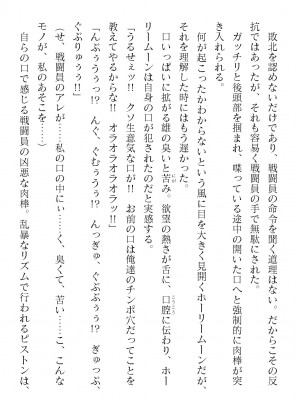 敗北を認めないだけであり、戦闘員の命令を聞く道理はない。だからこその反
抗ではあったが、それも容易く戦闘員の手で無駄にされた。
ガッチリと後頭部を掴まれ、喋っている途中の開いた口へと強制的に肉棒が突
き入れられる。
何が起こったかわからないという風に目を大きく見開くホーリームーンだが、
それを理解した時にはもう遅かった。
口いっぱいに拡がる雄の臭いと苦み。欲望の熱さが舌に、口腔に伝わり、ホー
リームーンは自身の口が犯されたのだと実感する。
「うるせぇッ!! クソ生意気な口が!! お前の口は俺達のチンポ穴だってことを
教えてやるからな!! オラオラオラオラッ!!」
「んぷぅううっ!? んぐ、ぐむぅううぅ!? んっぎゅ、ぐぷぷぅう!? ぎゅっぷ、
ぐぷりゅぅぅ!!」
(せ、戦闘員のアレが……私の口の中にぃ……く、臭くて、苦い……こ、こんな
モノが、私のあそこを……)
自らの口で感じる戦闘員の凶悪な肉棒。乱暴なリズムで行われるピストンは、